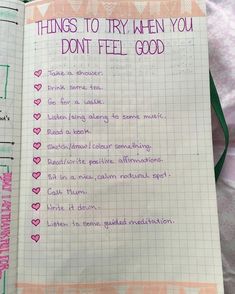 THINGS TO TRY WHEN YOU
DONT FEEL GOOD
Take a shower.
Drink some tea.
Go for a walk.
Listen/sing along to some music.
Read a book.
Sketch/draw/colour something.
Read/write positive affirmations.
Sit in a nice, calm natural spot.
Call Mum.
Write it down.
Listen to some guided meditation.